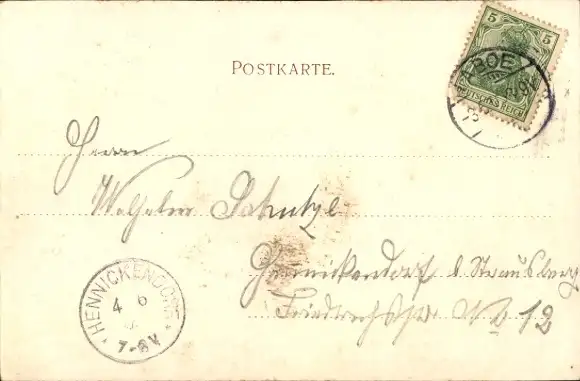 5 5
DEUTSCHES REICH
POSTKARTE.
Herrn
Wilhelm
Hennickendorf b Strausberg
Friedrichstr No 12
HENNICKENDORF
4 6
7-8V